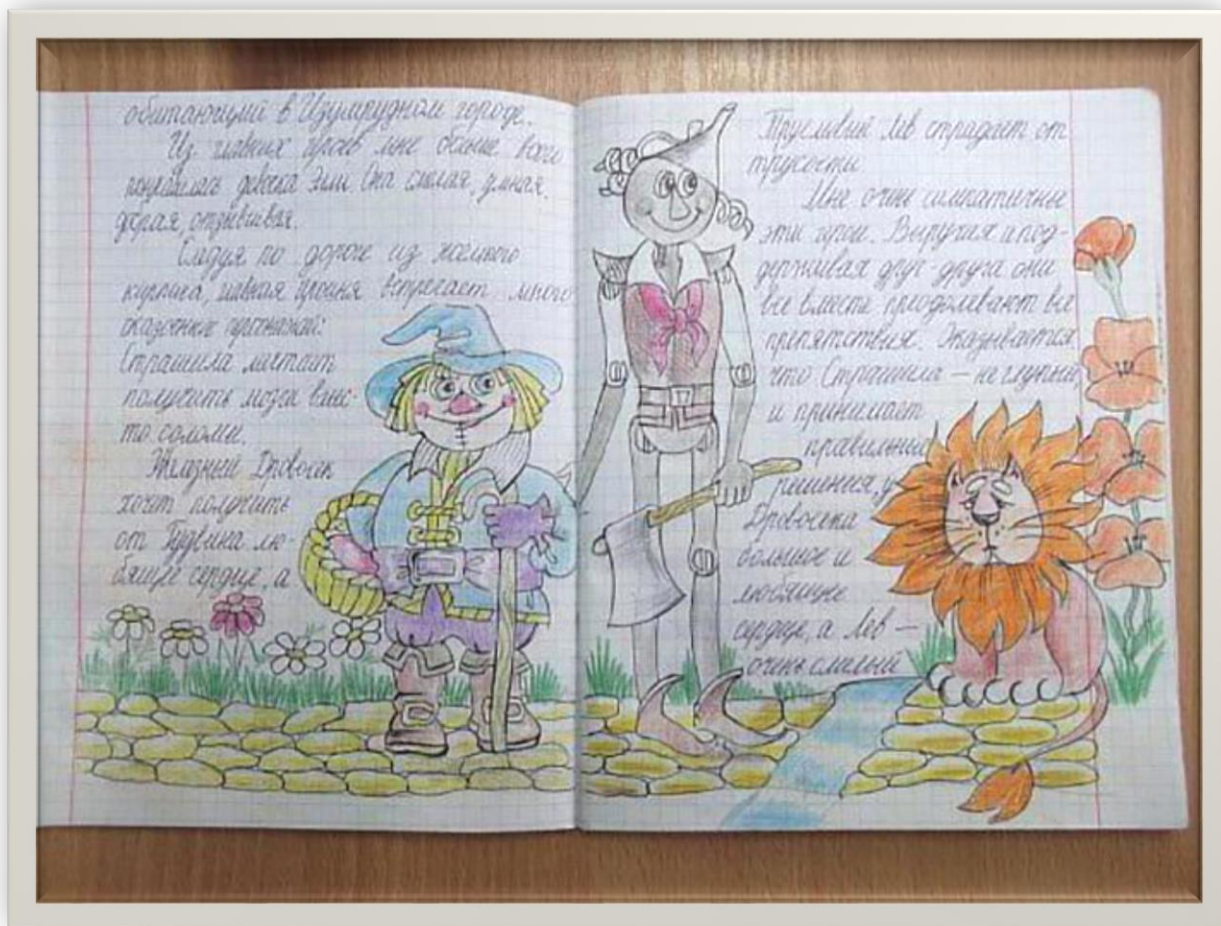 обитающий в Изумрудном городе.
Из главных героев мне больше всего
понравилась девочка Элли. Она смелая, умная,
добрая, отзывчивая.
Следуя по дороге из желтого
кирпича, главная героиня встречает много
сказочных персонажей:
Страшила мечтает
получить мозги вмес-
то соломы.
Железный Дровосек
хочет получить
от Гудвина лю-
бящее сердце, а
Трусливый Лев страдает от
трусости.
Мне очень симпатичны
эти герои. Выручая и под-
держивая друг-друга они
все вместе преодолевают все
препятствия. Оказывается,
что Страшила – не глупый
и принимает
правильные
решения, у
Дровосека
большое и
любящее
сердце, а Лев –
очень смелый